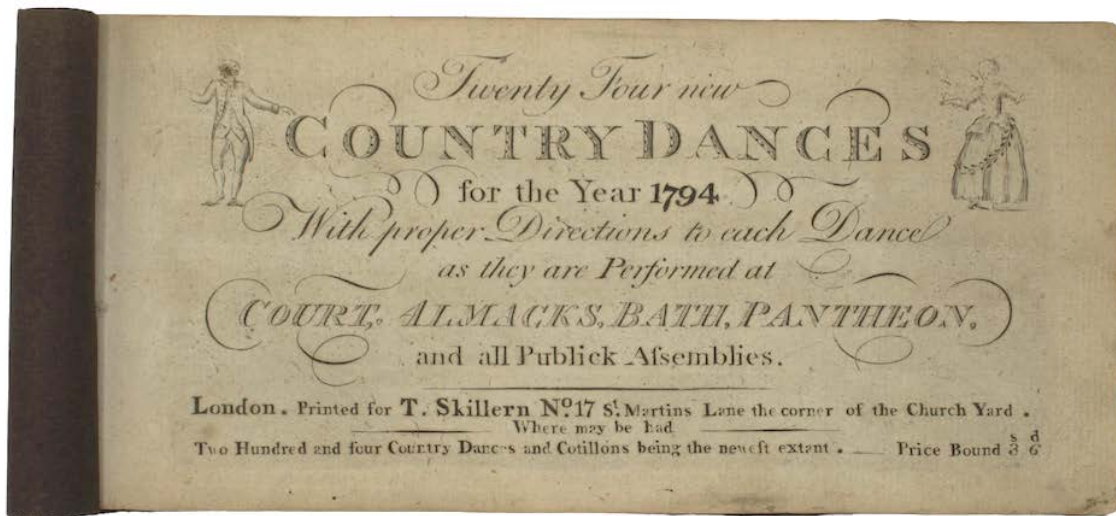 Twenty Four new
COUNTRY DANCES
for the Year 1794
With proper Directions to each Dance
as they are Performed at
COURT, ALMACKS, BATH, PANTHEON,
and all Publick Aſsemblies.
London. Printed for T. Skillern No. 17 St. Martins Lane the corner of the Church Yard.
Where may be had
Two Hundred and four Country Dances and Cotillons being the neweſt extant. Price Bound 3s 6d